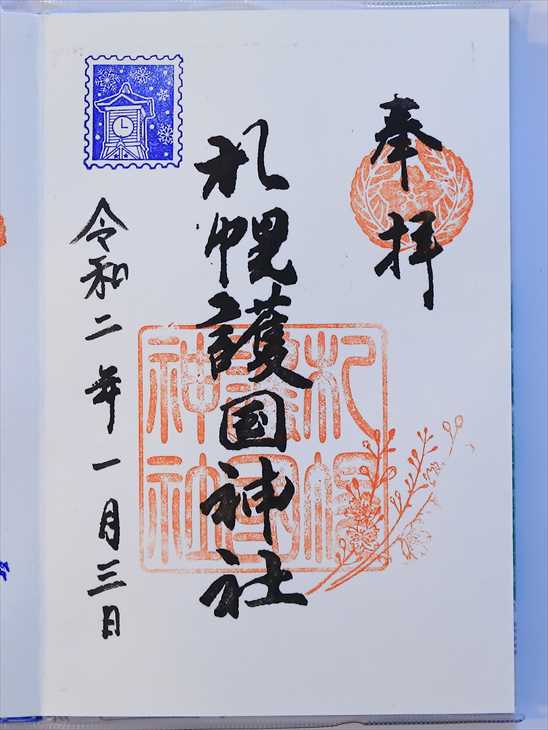 奉拝
札幌護国神社
札幌護國神社
令和二年一月三日